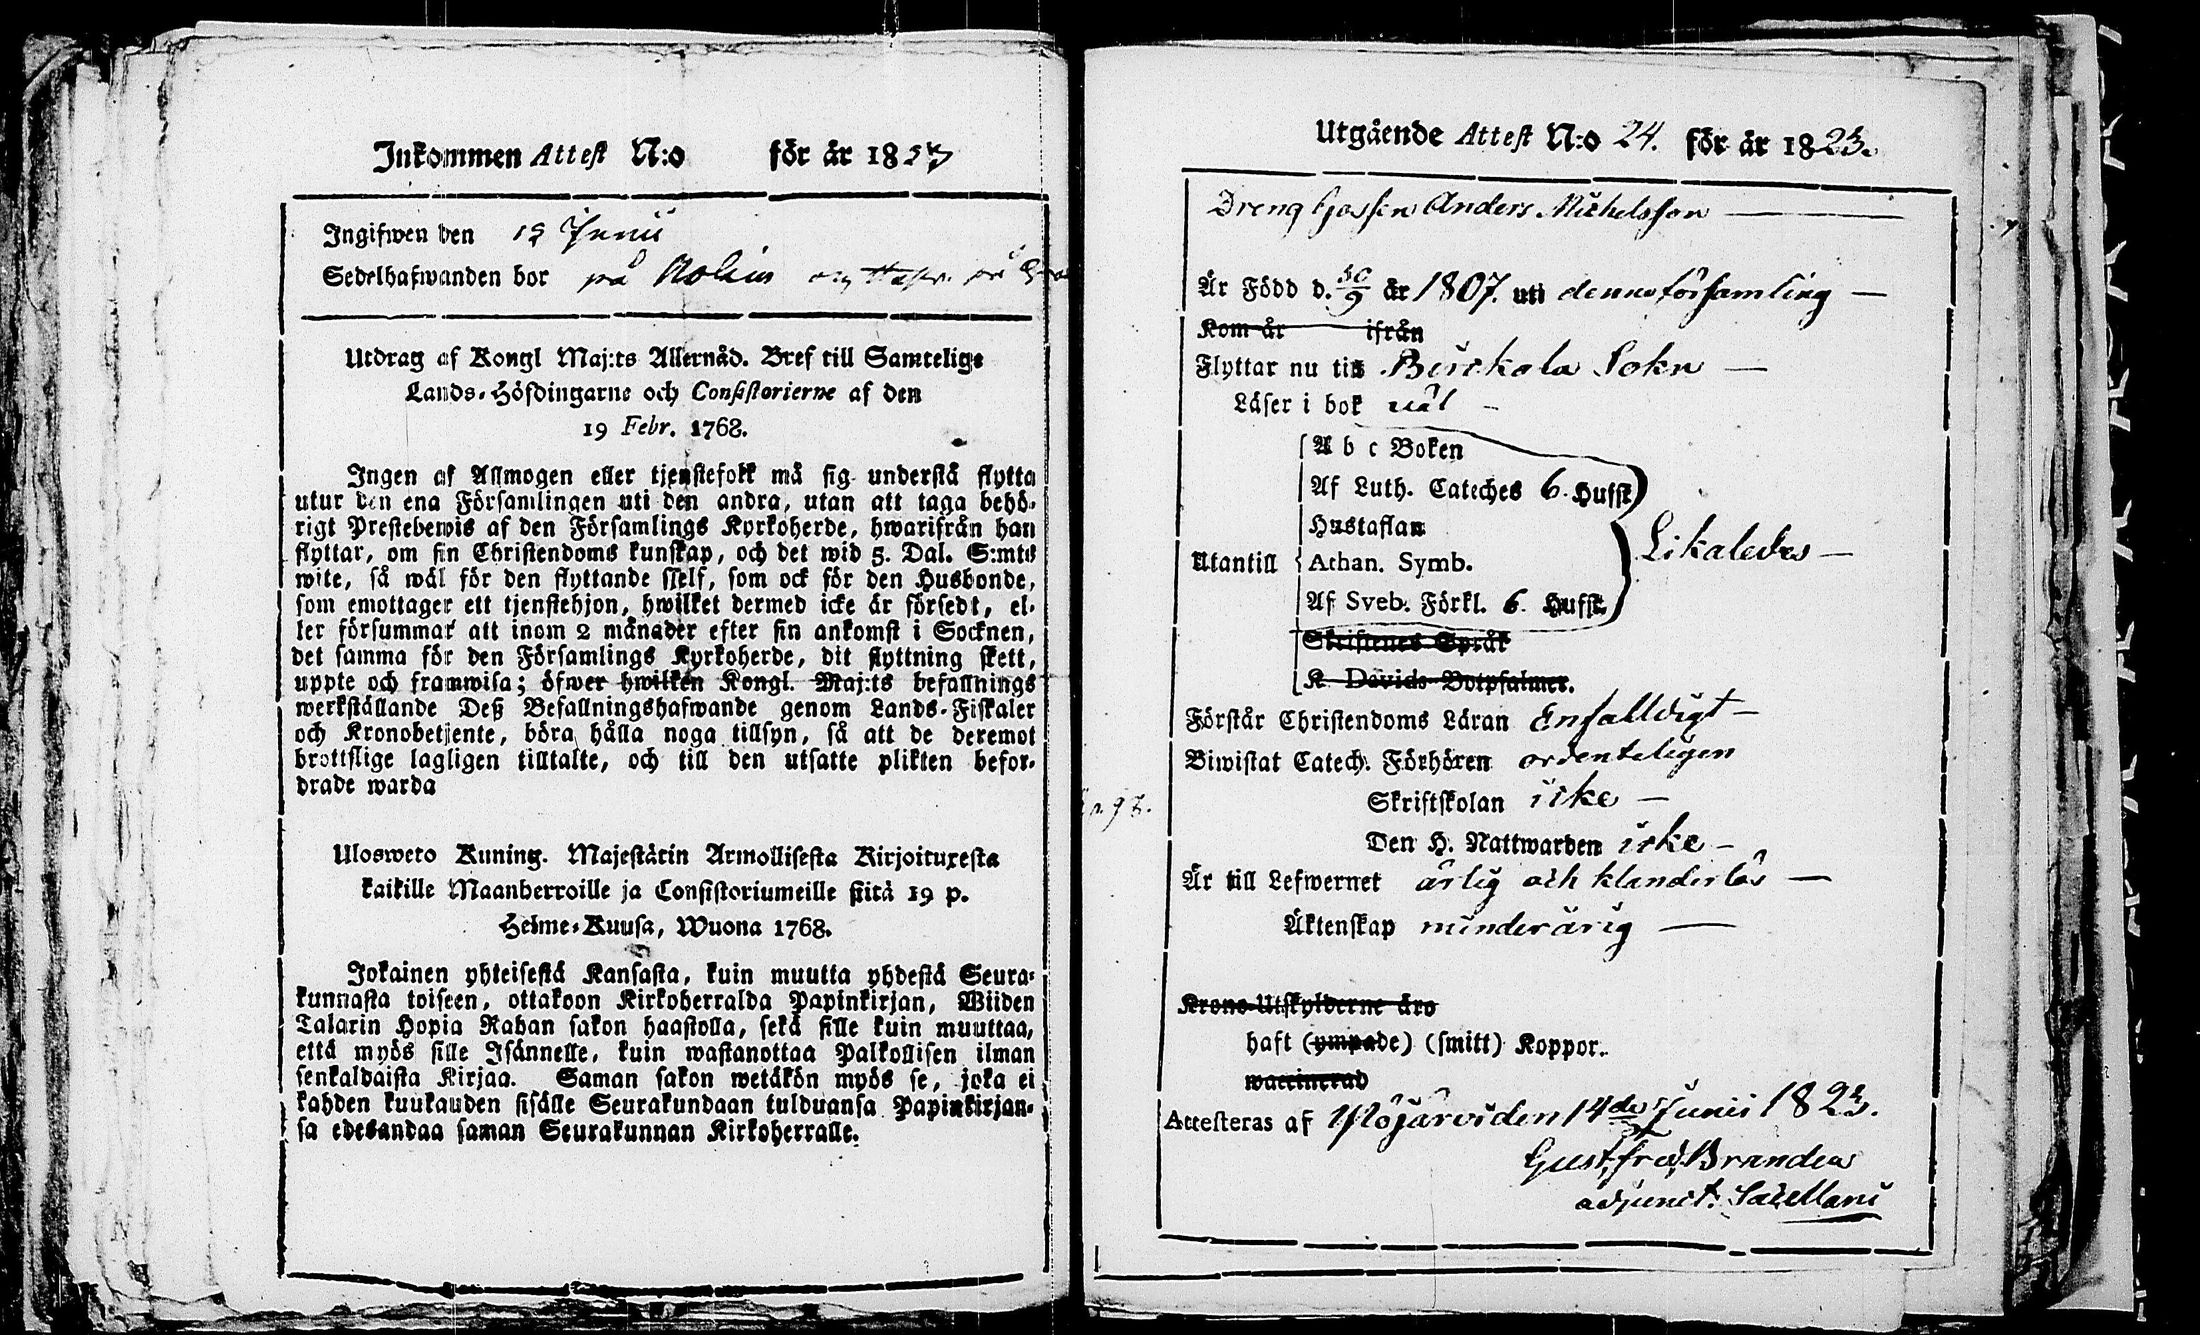 Inkommen Attest N:o för år 1823
Ingifwen den 15 Junii
Sedelhafwanden bor på
Utdrag af Kongl Maj:ts Allernåd. Bref till Samtelige
Lands-Höfdingarne och Consistorierne af den
19 Febr. 1768.
Ingen af Allmogen eller tjenstefolk må sig understå flytta
utur den ena Församlingen uti den andra, utan att taga behö-
rigt Prestebewis af den Församlings Kyrkoherde, hwarifrån han
flyttar, om sin Christendoms kunskap, och det wid 5. Dal. S:mts
wite, så wäl för den flyttande sself, som ock för den Husbonde,
som emottager ett tjenstehjon, hwilket dermed icke är försedt, el-
ler försummar att inom 2 månader efter sin ankomst i Socknen,
det samma för den Församlings Kyrkoherde, dit flyttning skett,
uppte och framwisa; öfwer hwilken Kongl. Maj:ts befallnings
werkställande Deß Befallningshafwande genom Lands-Fiskaler
och Kronobetjente, böra hålla noga tillsyn, så att de deremot
brottslige lagligen tilltalte, och till den utsatte plikten befor-
drade warda
Ulosweto Kuning. Majestätin Armollisesta Kirjoituxesta
kaikille Maanherroille ja Consistoriumeille siitä 19 p.
Helme-Kuusa, Wuona 1768.
Jokainen yhteisestä Kansasta, kuin muutta yhdestä Seura-
kunnasta toiseen, ottakoon Kirkoherralda Papinkirjan, Wiiden
Talarin Hopia Rahan sakon haastolla, sekä sille kuin muuttaa,
että myös sille Isännelle, kuin wastanottaa Palkollisen ilman
senkaldaista Kirjaa. Saman sakon wetäkön myös se, joka ei
kahden kuukauden sisälle Seurakundaan tulduansa Papinkirjan-
sa edesandaa saman Seurakunnan Kirkoherralle.
Utgående Attest N:o 24. för år 1823.
Dreng Gossen Anders Michelsson
Är Född d. 30/9 år 1807. uti denna församling
Kom år ifrån
Flyttar nu till Birckala Sokn
Läser i bok wäl
A b c Boken
Af Luth. Cateches 6. Hufst
Hustaflan
Utantill Athan. Symb. Likaledes
Af Sveb. Förkl. 6. Hufst.
Skriftenes Språk
K. Davids Botpsalmer.
Förstår Christendoms Läran Enfalldigt
Biwistat Catech. Förhören ordenteligen
Skriftskolan icke
Den H. Nattwarden icke
Är till Lefwernet ärlig och klanderlös
Äktenskap minderårig
Krono-Utskylderne äro
haft (ympade) (smitt) Koppor.
waccinerad
Attesteras af Ylöjärvi den 14de Junii 1823.
Gust. Fred. Brander
adjunct. Sacellani